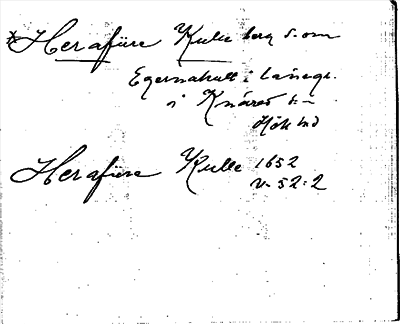 *Herafüre Kulle berg S. om
Egernahult i Länsgr.
i Knäred s-n
Hök hd
Herafüre Kulle 1652
v. 52:2